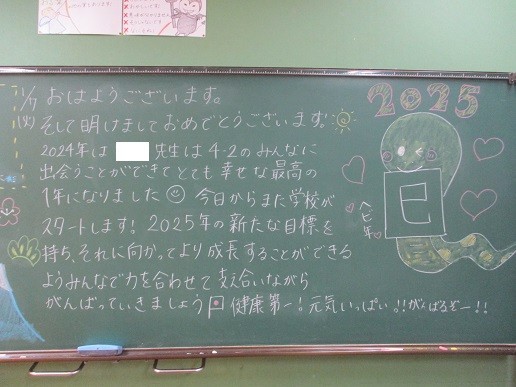 2025
1/7 おはようございます。
(火) そして明けましておめでとうございます。
2024年は 先生は4-2のみんなに
出会うことができてとても幸せな最高の
1年になりました 今日からまた学校が
スタートします! 2025年の新たな目標を
持ち、それに向かってより成長することができる
ようみんなで力を合わせて支え合いながら
がんばっていきましょう 健康第一! 元気いっぱい!! がんばるぞー!!
巳
ヘビ年